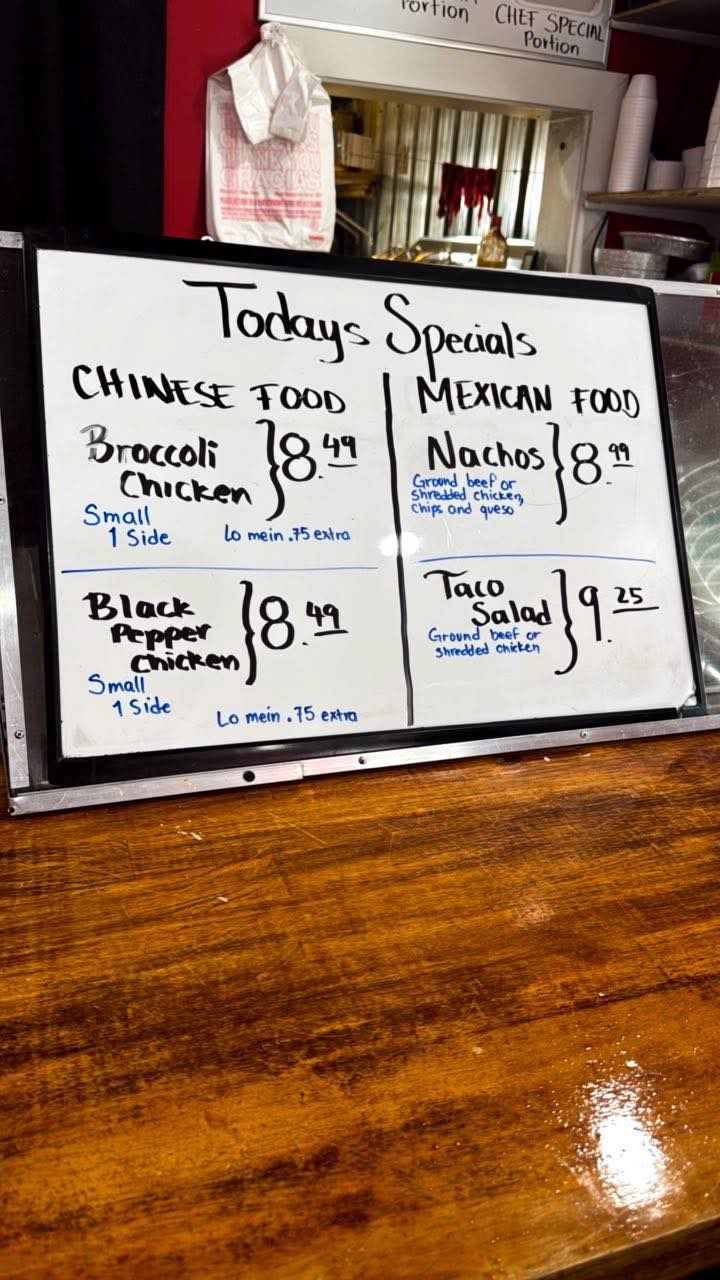 Portion
CHEF SPECIAL
Portion
THANK YOU
GRACIAS
Todays Specials
CHINESE FOOD
Broccoli
Chicken
8.49
Small
1 Side
Lo mein .75 extra
Black
Pepper
Chicken
8.49
Small
1 Side
Lo mein .75 extra
MEXICAN FOOD
Nachos
8.99
Ground beef or
shredded chicken,
chips and queso
Taco
Salad
9.25
Ground beef or
shredded chicken